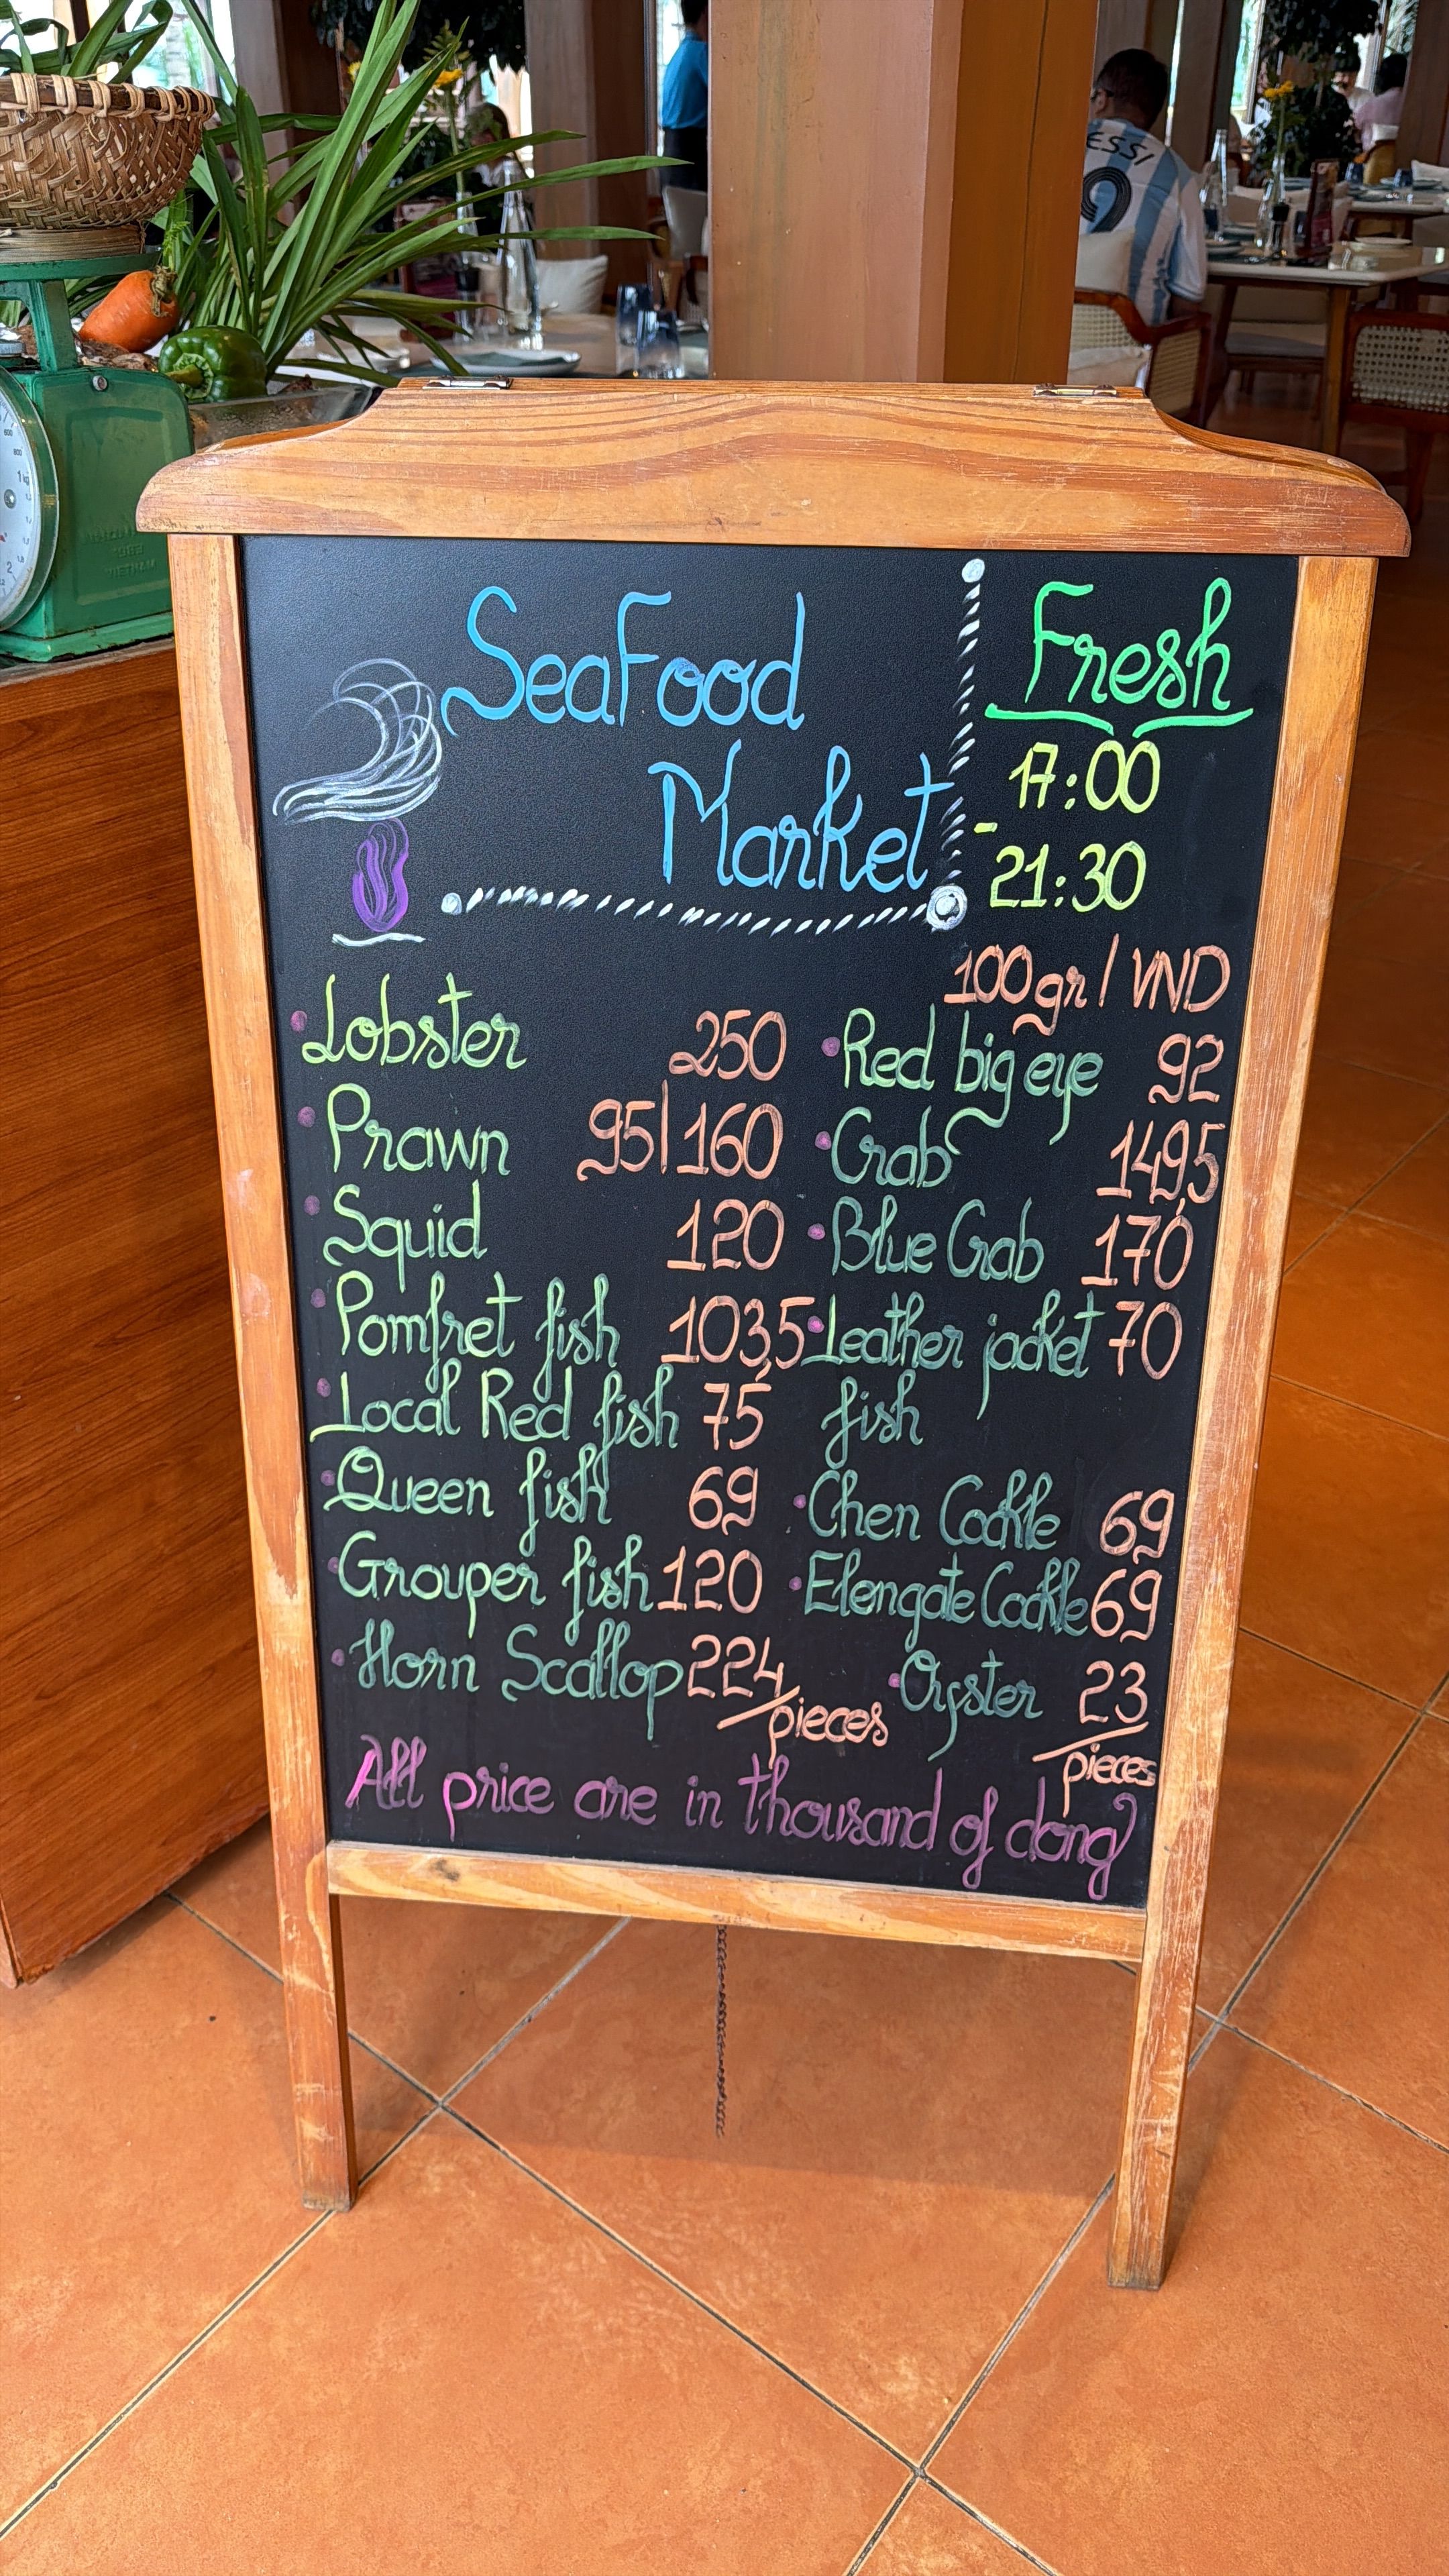 SeaFood
Market
Fresh
17:00
- 21:30
100gr/VND
Lobster 250
Prawn 95/160
Squid 120
Pomfret fish 103,5
Local Red fish 75
Queen fish 69
Grouper fish 120
Horn Scallop 224/pieces
Red big eye 92
Crab 149,5
Blue Crab 170
Leather jacket 70
fish
Chen Cockle 69
Elengate Cockle 69
Oyster 23
/pieces
All price are in thousand of dong
ESSI
VIETNAM